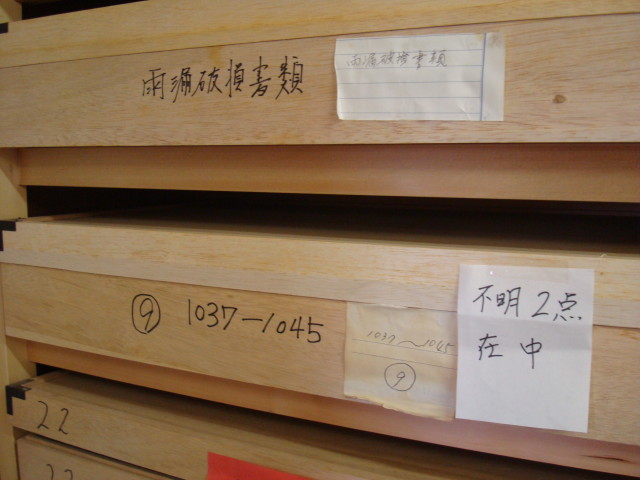 雨漏破損書類
雨漏破損書類
⑨ 1037-1045
1037~1045
⑨
不明2点
在中
22